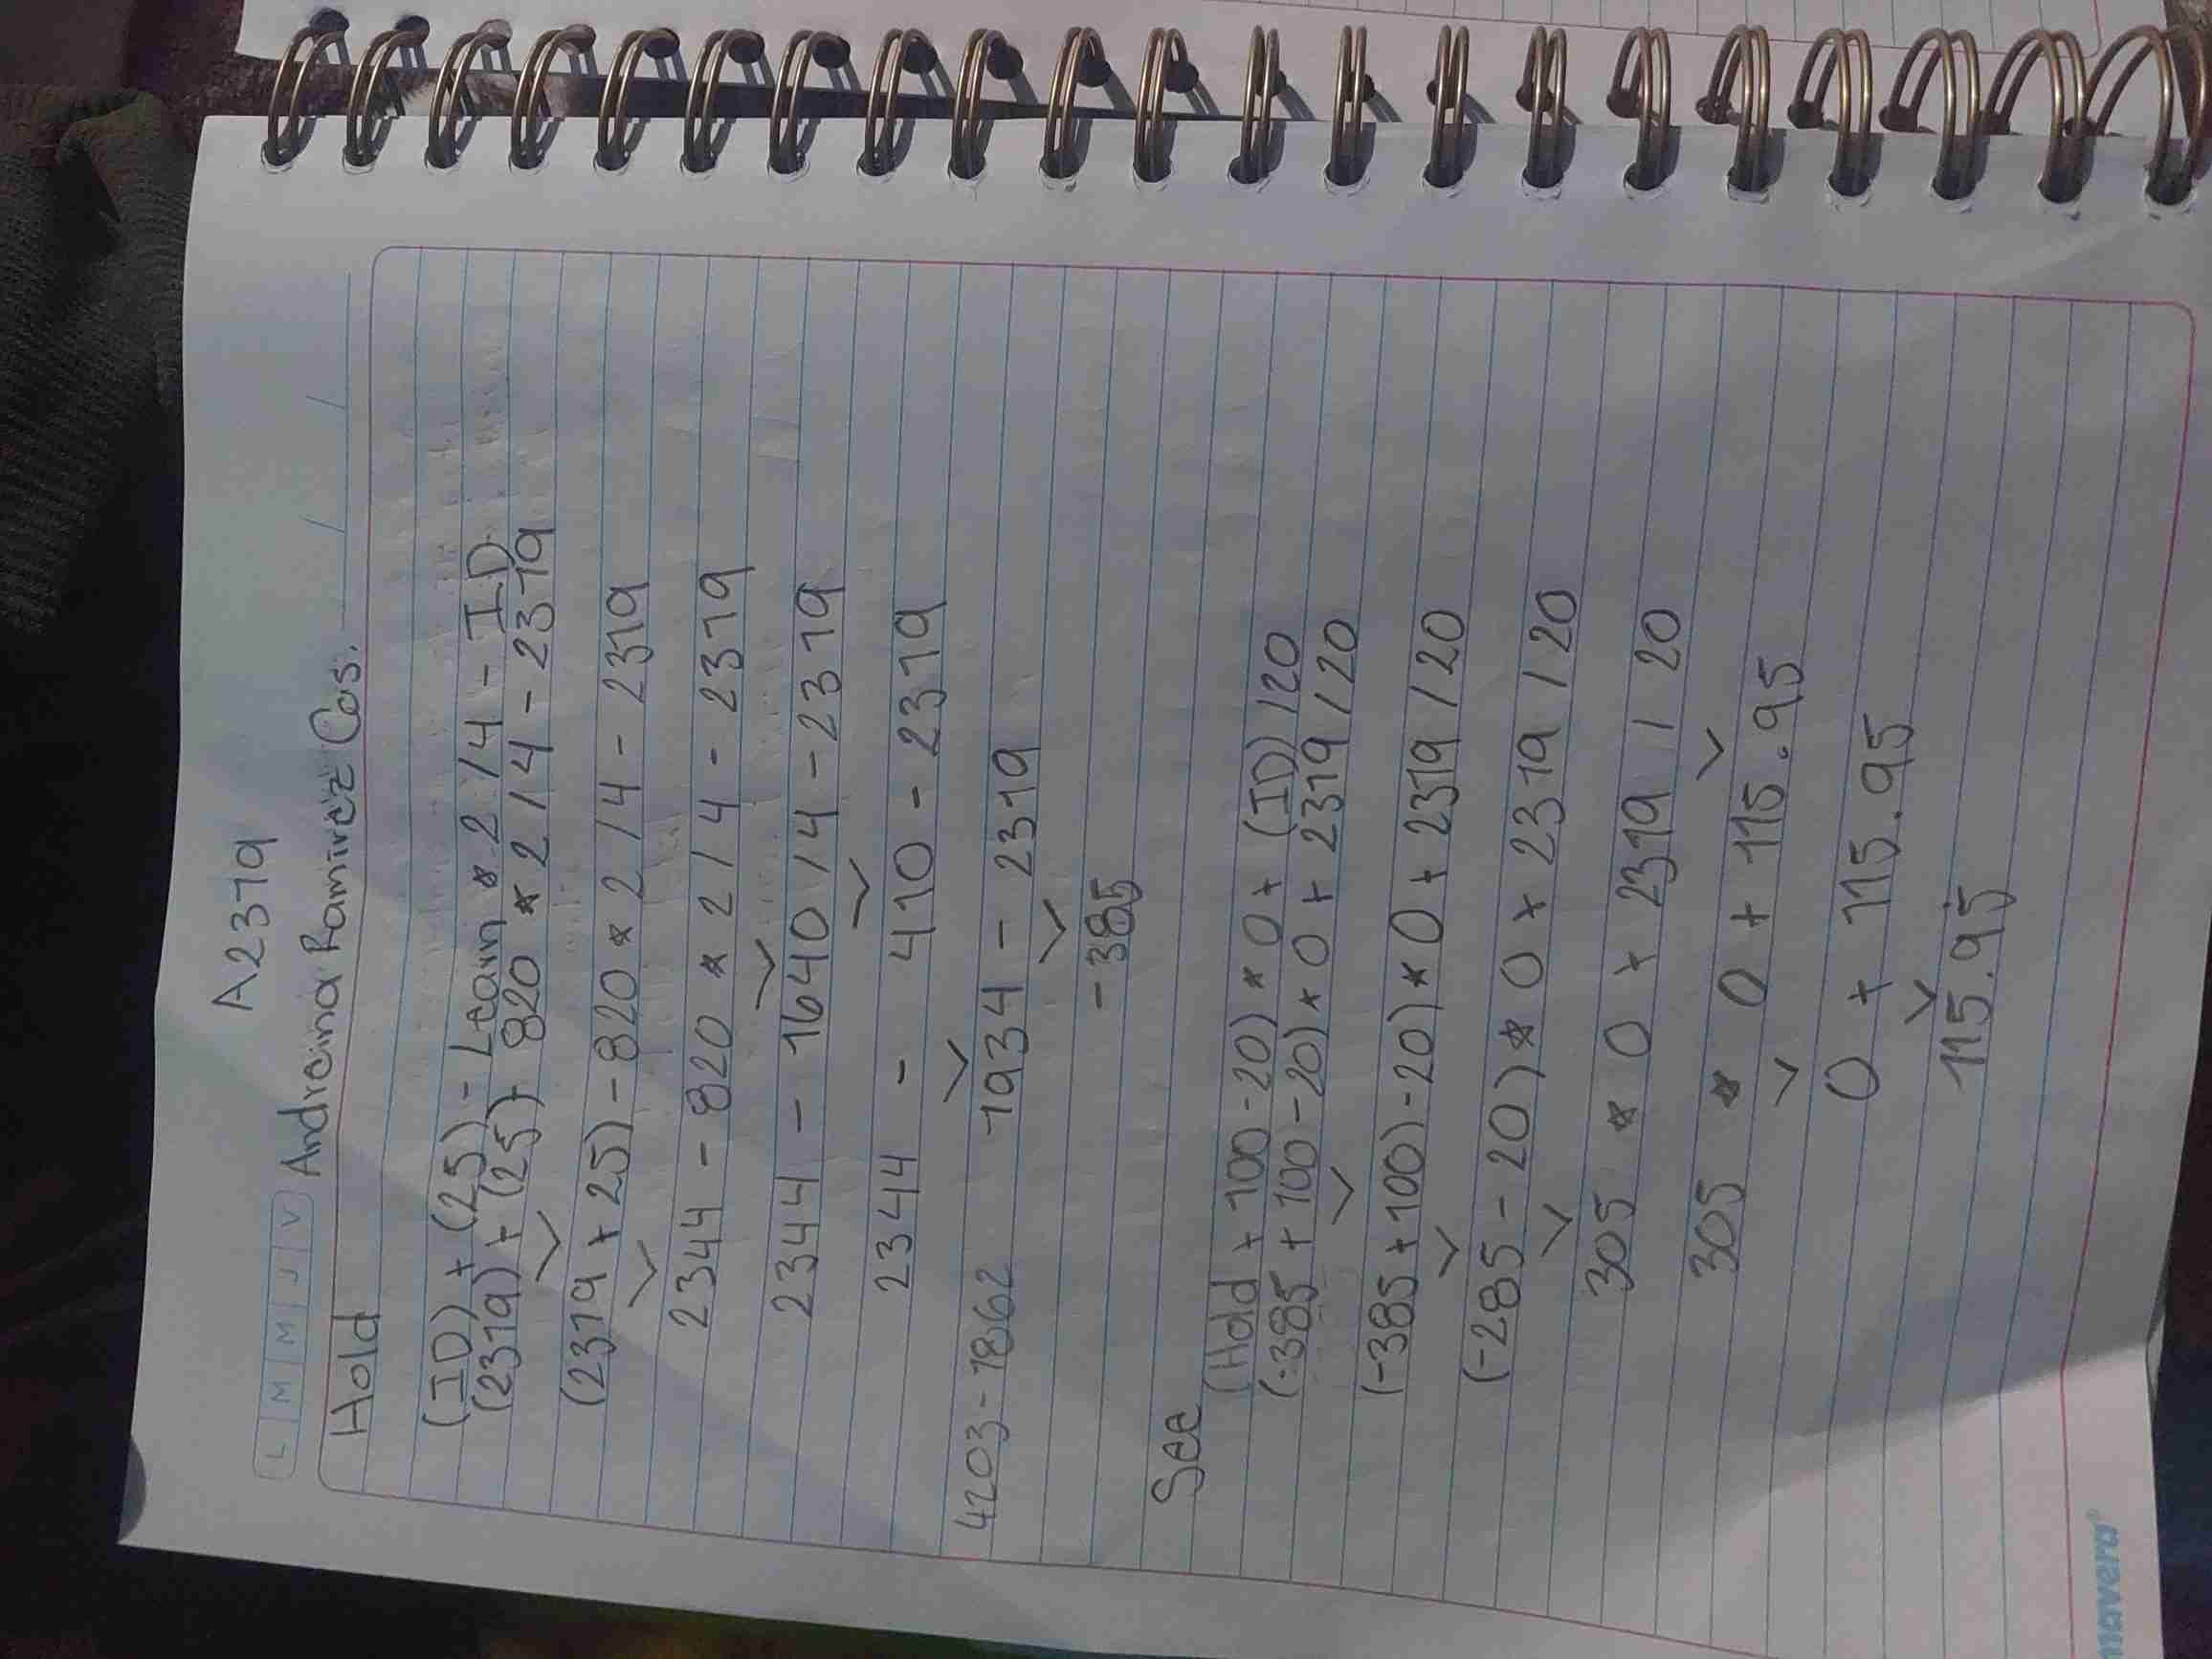 A2319
L M M J V
Andreina Ramirez Cas.
Hold
(ID) + (25) - Lean * 2 / 4 - ID
(2319) + (25) - 820 * 2 / 4 - 2319
(2319 + 25) - 820 * 2 / 4 - 2319
2344 - 820 * 2 / 4 - 2319
2344 - 1640 / 4 - 2319
2344 - 410 - 2319
4203-1862 1934 - 2319
-385
See
(Hold + 100 - 20) * 0 + (ID) / 20
(-385 + 100 - 20) * 0 + 2319 / 20
(-385 + 100) - 20) * 0 + 2319 / 20
(-285 - 20) * 0 + 2319 / 20
305 * 0 + 2319 / 20
305 * 0 + 115.95
0 + 115.95
115.95